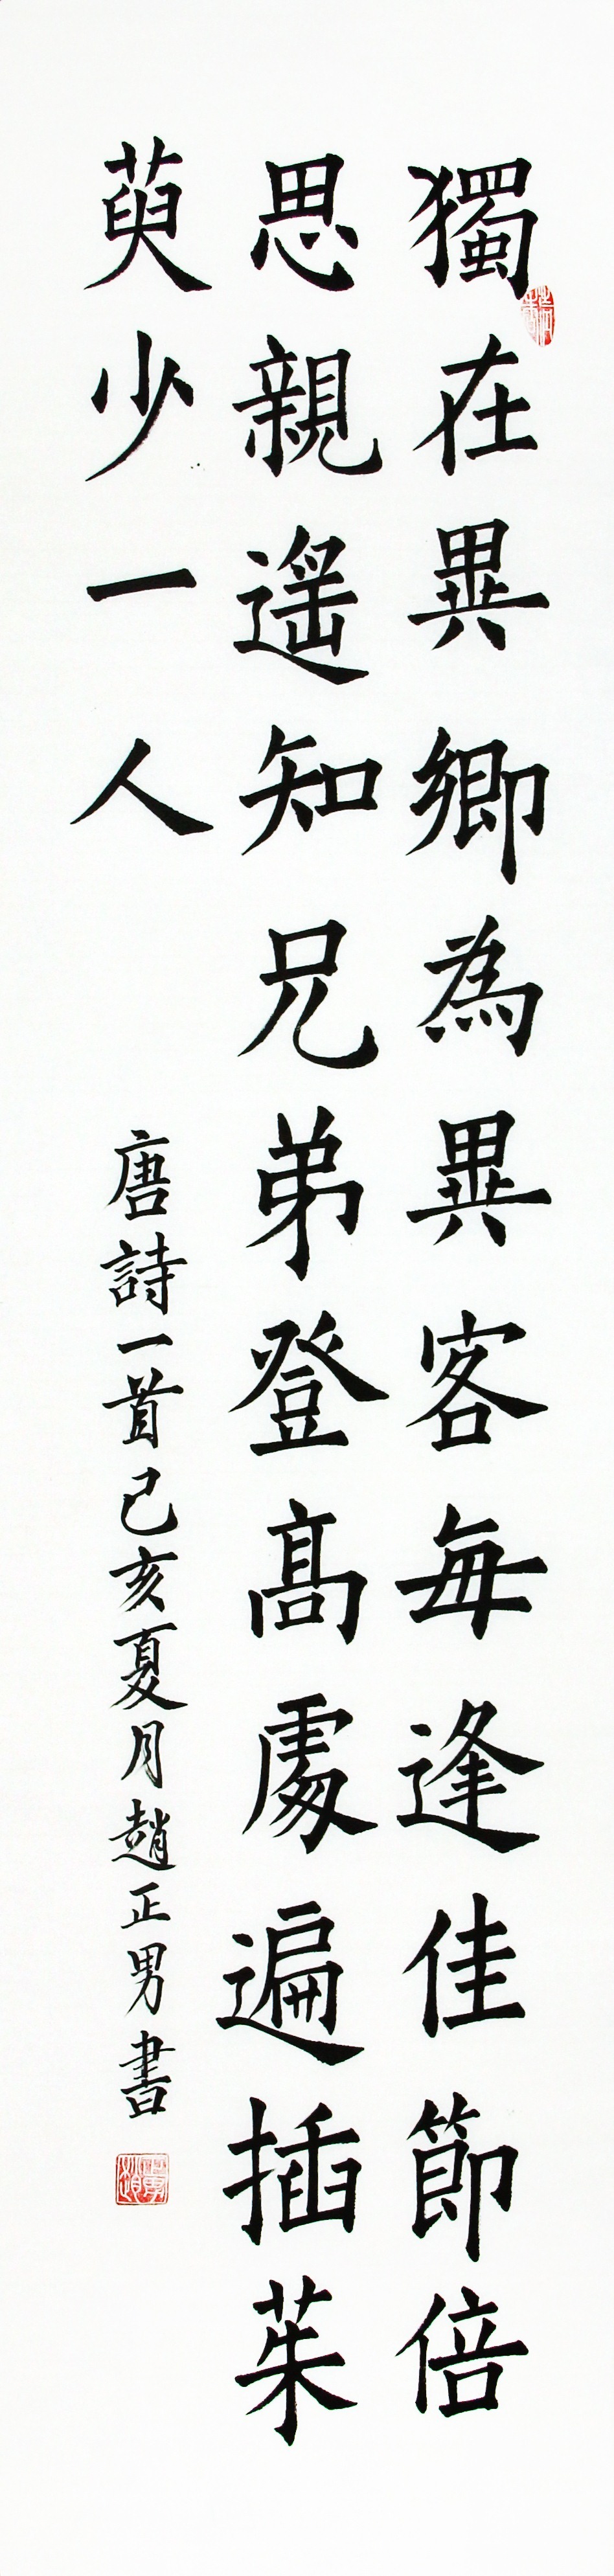 獨在異鄉為異客每逢佳節倍
思親遙知兄弟登髙處遍插茱
萸少一人
唐詩一首己亥夏月趙正男書